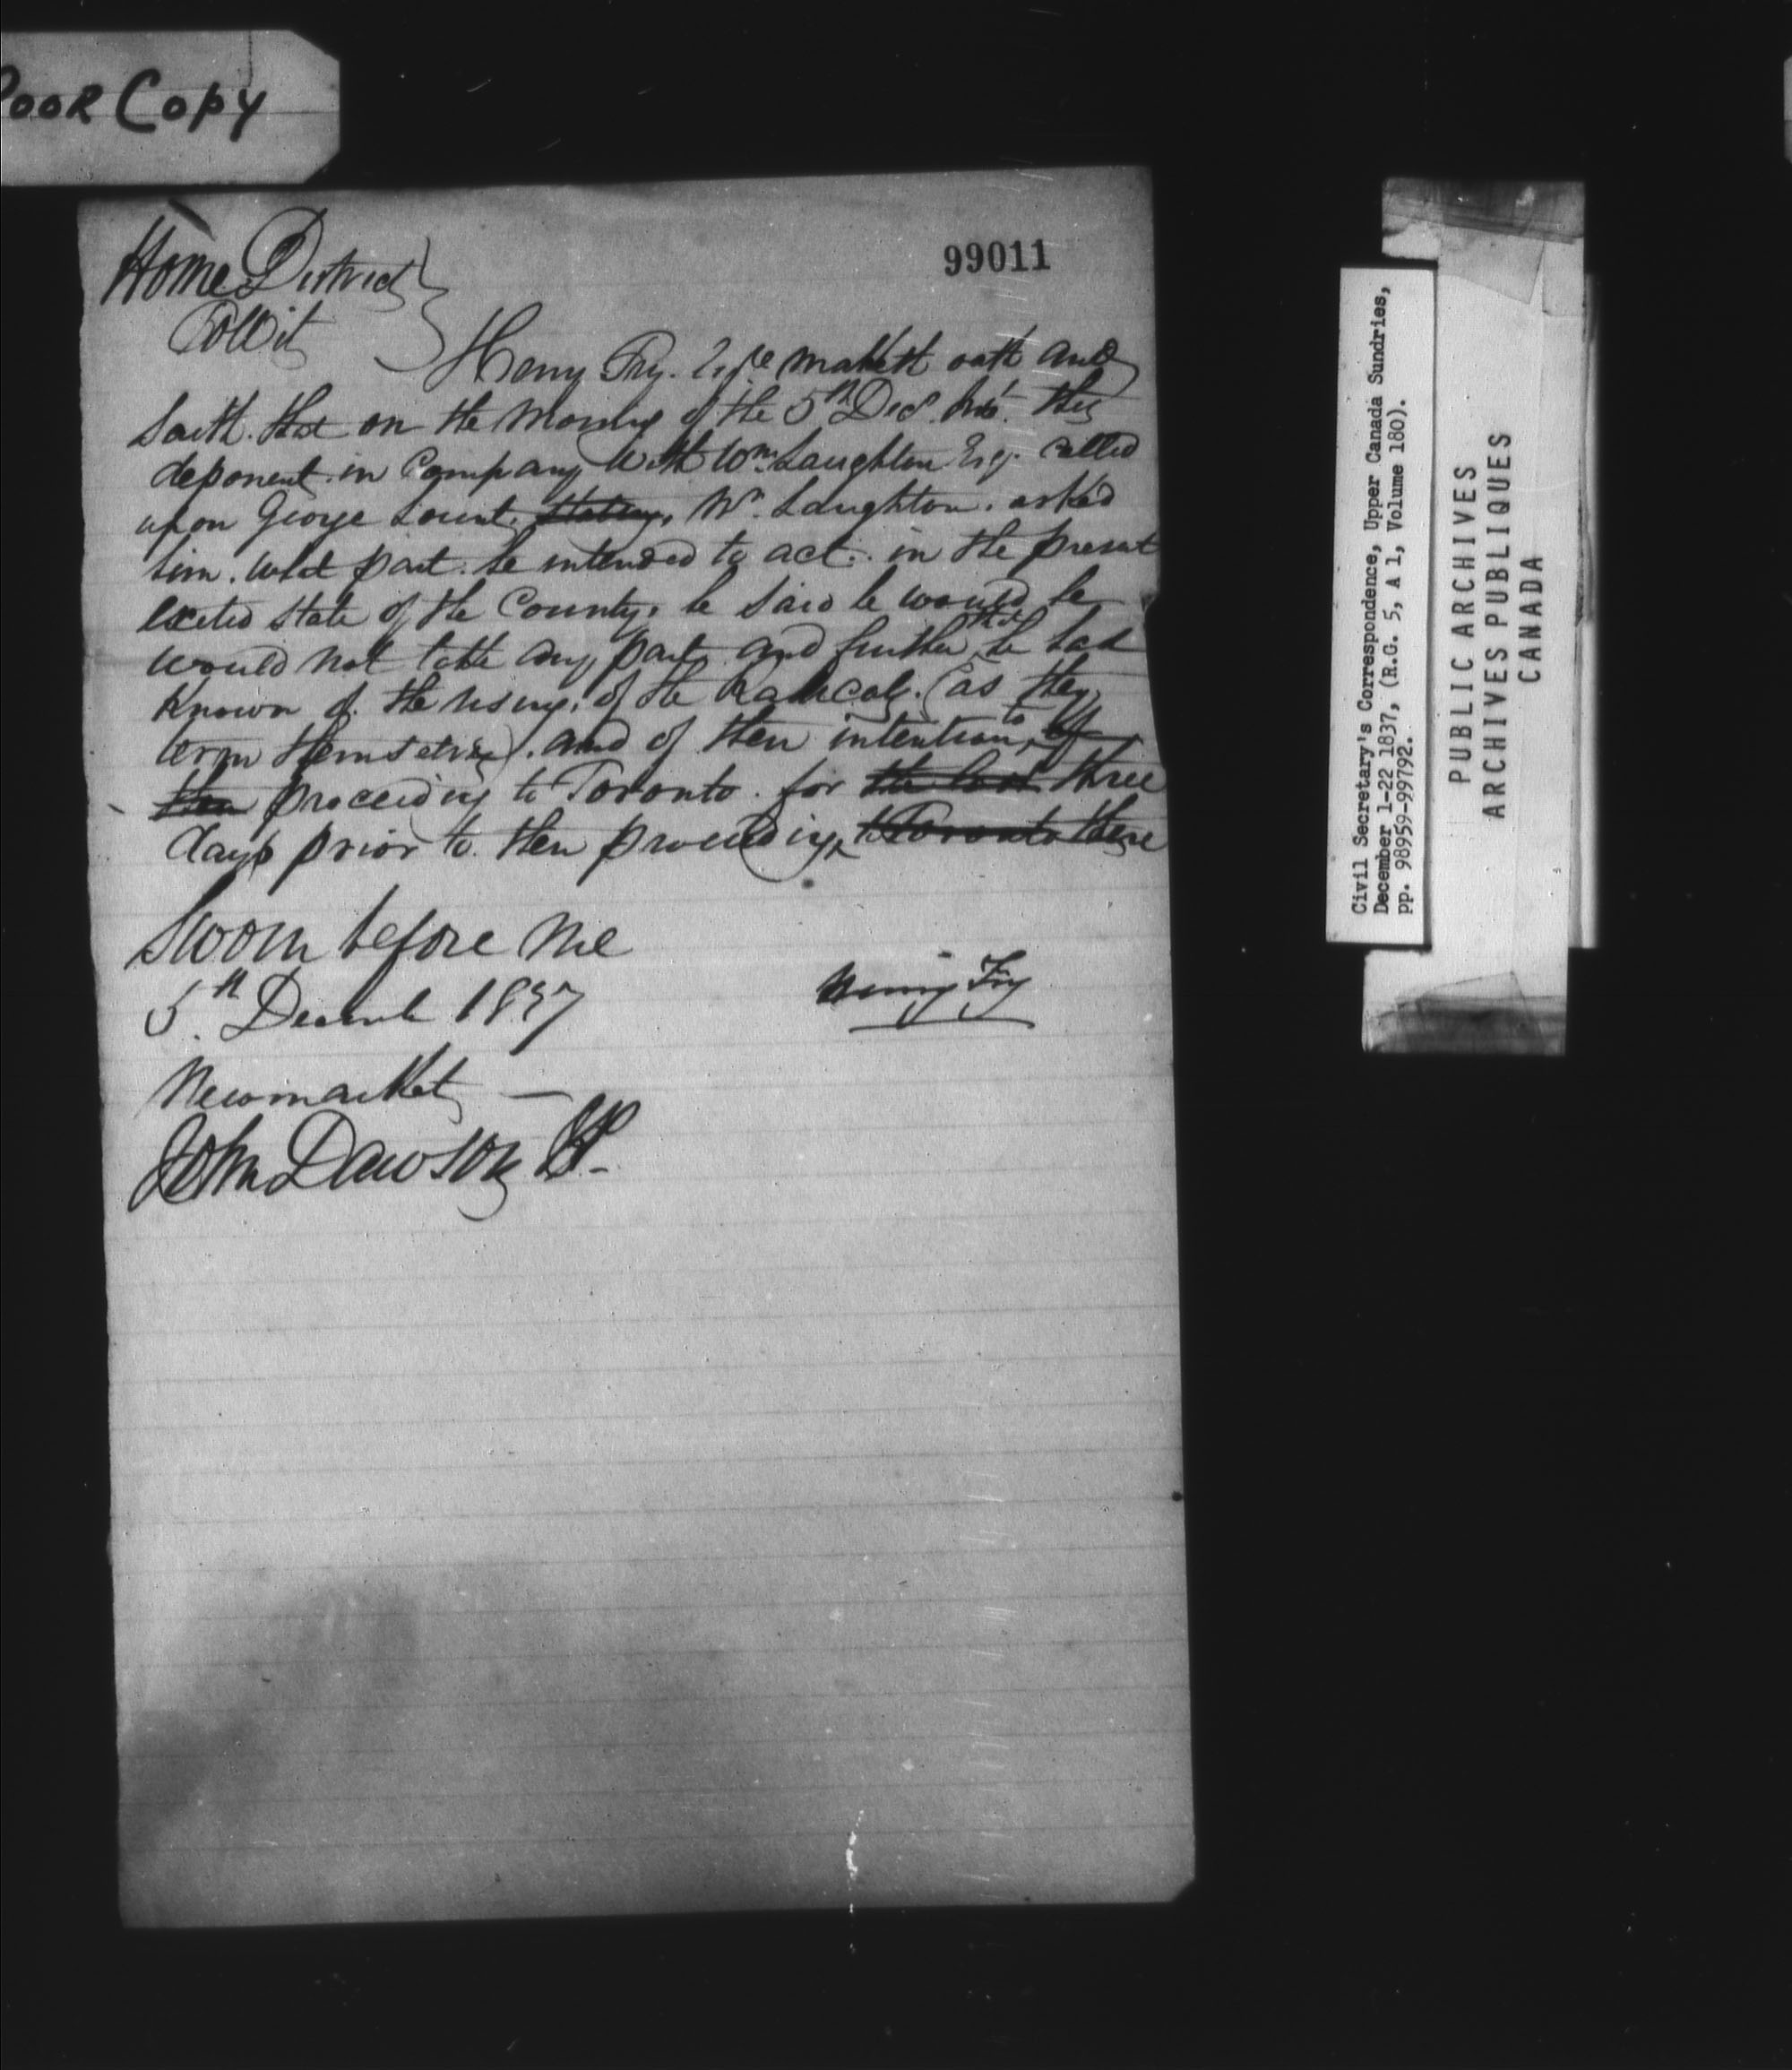 POOR COPY
99011
Home District
To Wit
Henry Fry. Esqre maketh oath and
saith. that on the morning of the 5th Decr. Inst. this
deponent in Company with Wm. Laughton Esq. called
upon George Lount. stating, Mr. Laughton. asked
him. what part. he intended to act. in the present
excited state of the County. he said he would he
would not take any part and further that he had
known of the rising. of the Radicals. (as they
term themselves). and of their intention, to of
their proceeding to Toronto. for the last three
days prior to their proceeding, to Toronto there
Sworn before me
5th Decembr 1837
Henry Fry
Newmarket —
John Dawson JP.
Civil Secretary's Correspondence, Upper Canada Sundries,
December 1-22 1837, (R.G. 5, A 1, Volume 180).
pp. 98959-99792.
PUBLIC ARCHIVES
ARCHIVES PUBLIQUES
CANADA